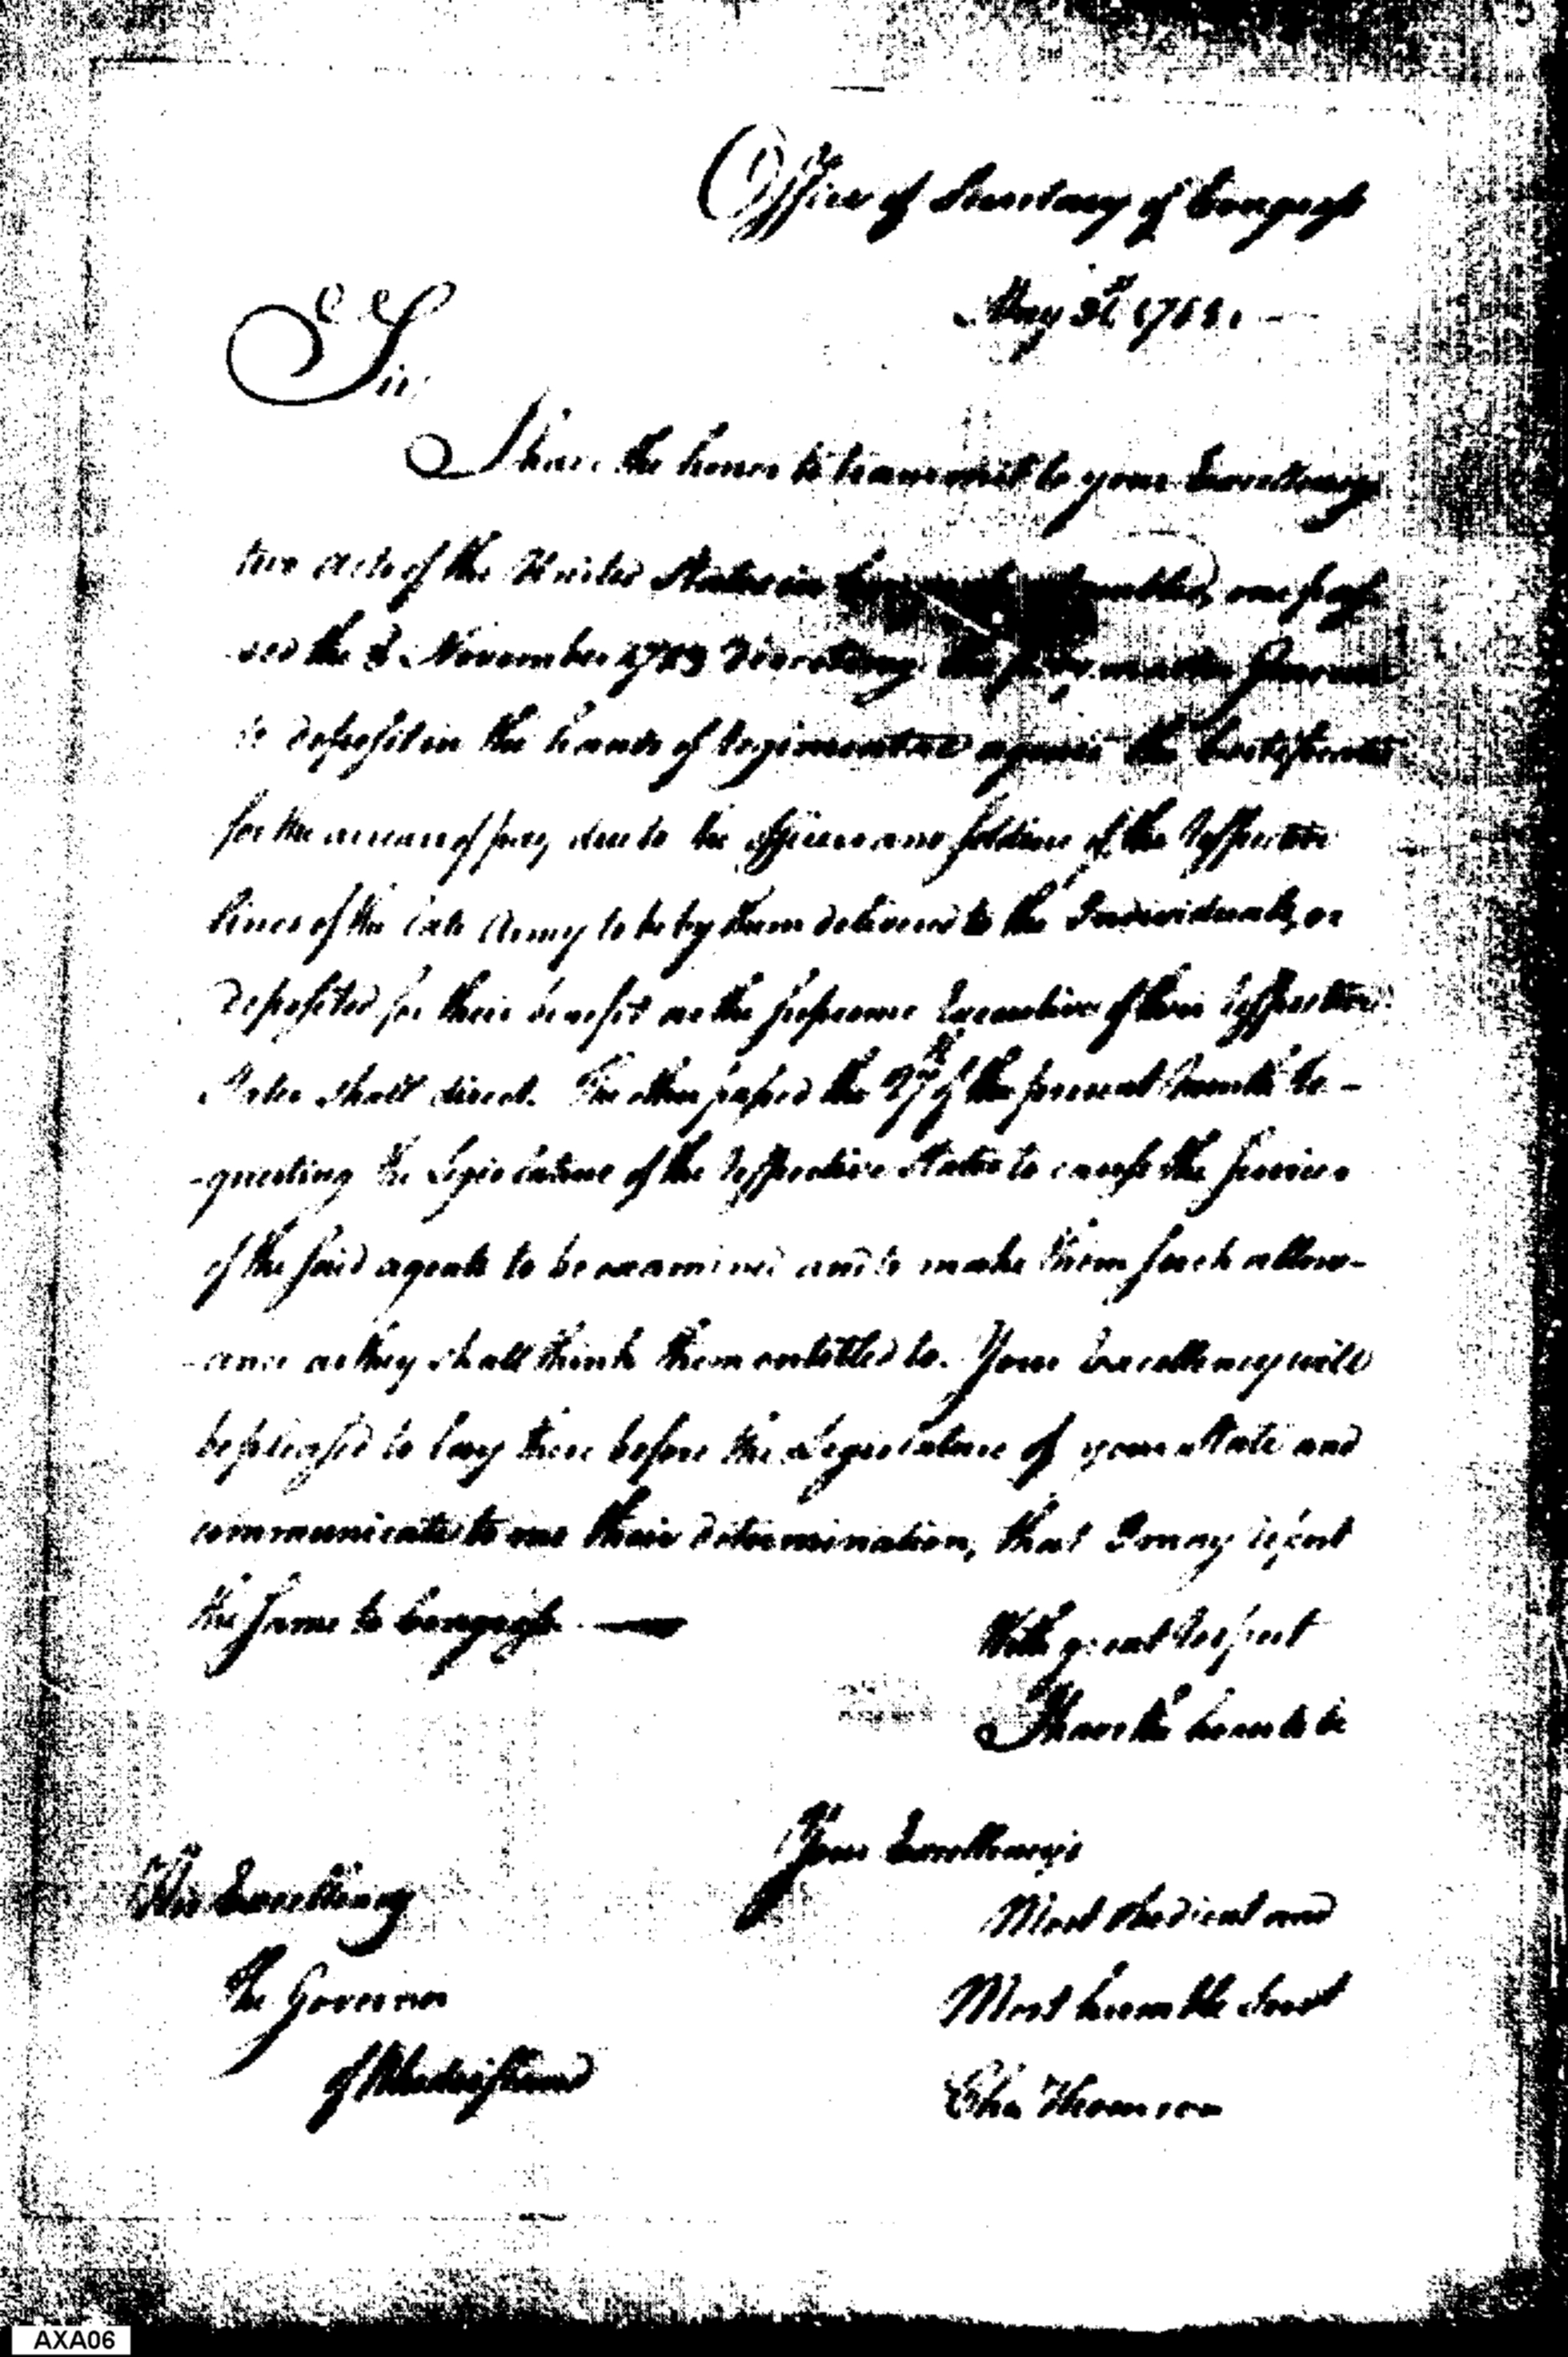 Office of Secretary of Congress
May 31st 1785.
Sir,
I have the honor to transmit to your Excellency
two acts of the United States in Congress assembled, one pas-
sed the 3 November 1783 directing the pay master General
to deposit in the hands of regimental agents the Certificates
for the arrears of pay due to the officers and soldiers of the respective
lines of the late Army to be by them delivered to the Individuals, or
deposited for their benefit as the supreme Executive of their respective
States shall direct. The other passed the 27th of the present Month re-
-questing the Legislature of the respective States to cause the services
of the said agents to be examined and to make them such allow-
-ance as they shall think them entitled to. Your Excellency will
be pleased to lay these before the Legislature of your State and
communicate to me their determination, that I may report
the same to Congress.
With great respect
I have the honor to be
Your Excellency's
His Excellency
Most obedient and
The Governor
Most humble Servt
of Rhode island
Cha Thomson
AXA06